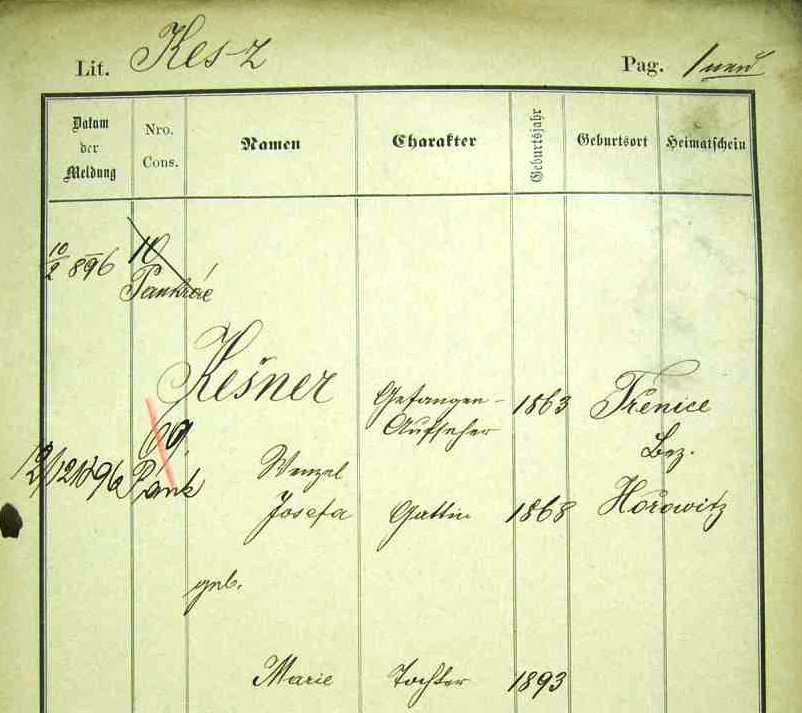 Lit. Kes-z
Pag. 1 neu
Datum der Meldung
Nro. Cons.
Namen
Charakter
Geburtsjahr
Geburtsort
Heimatschein
10/2 896
10
Pankrác
Kešner
Gefangen-
Aufseher
1863
Třenice
Bez.
Hořowitz
69.
12/12 1896
Pank
Wenzel
Josefa
Gattin
1868
geb.
Marie
Tochter
1893